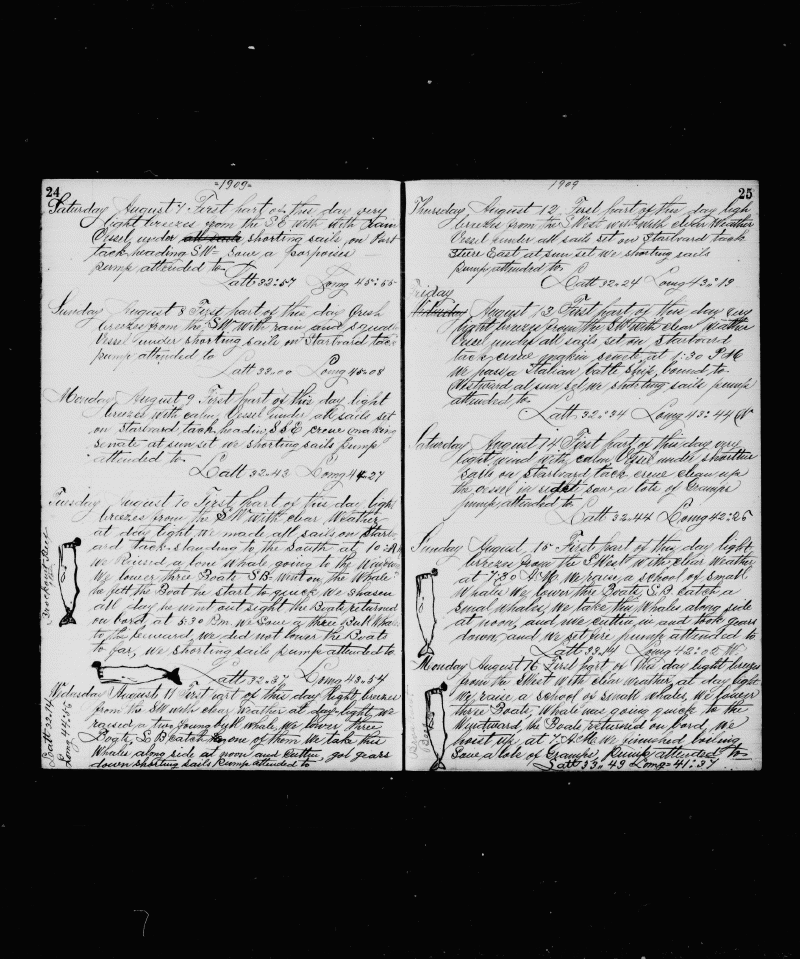 =1909=
24
Saturday August 7 First part of this day very
light breezes from the S E with with Rain
Vessel under all sails shorting sails, on Port
tack heading S W- Saw a porpoises
pump attended to
Latt 32:57 Long 45:55
Sunday August 8 First part of this day fresh
breezes from the SW with rain and squalls
Vessel under shorting sails on Starbord tack
pump attended to
Latt 33.00 Long 45-08
Monday August 9 First part of this day light
breezes with calm, Vessel under all sails set
on Starbord tack headin SSE, crew making
senate at sun set we shorting sails pump
attended to
Latt 32-43 Long 44-27
Tuesday August 10 First part of this day light
breezes from the SW with clear Weather
at day light, we made all sails on Starb
ord tack standing to the South at 10:
We Raised a lone Whale going to the
We lower three Boats S.B. Went on the Whale
all day he went out sight the Boats returned
on bord, at 5:30 P.m. We Saw a three Bull Whale
to the leeward, we did not lower the Boats
to far, We shorting sails pump attended to
Latt 32:57 Long 43=54
Wednesday August 11 First part of this day light breezes
from the SW with clear Weather at day light, we
raised a two young bull whale, We lower three
Boats, S.B catch one of them We take this
Whales along side at noon and Cuttin, got gears
down shorting sails Pump attended to
Latt 32.14
Long 44:55
1909
25
Thursday August 12, First part of this day ligh
breezes from the S West with with clear Weather
Vessel under all sails set on Starbord tack
Steer East at sun set we shorting sails
pump attended to
Latt 32:24 Long 43:19
Friday
August 13 First part of this day very
light breezes from the SW with clear Weather
Vessel under all sails set on Starbord
tack crew making senate, at 1:30 P M
We pass a Italian battle ship bound to
Westward at sun set we shorting sails pump
attended to
Latt 32:34 Long 43:44 W
Saturday August 14 First part of this day very
light wind with calm Vessel under shorten
sails on Starbord tack crew clean up
the vessel in side saw a lots of Gramps
pump attended to
Latt 32:44 Long 42:25
Sunday August 15 First part of this day light
breezes from the S West with clear Weather
at 7:30 A.M. We raise a school of small
Whales We lower three Boats S.B. catch a
small whales, we take this Whales along side
at noon, and we cuttin in and took gears
down, and we set fire pump attended to
Monday August 16 First part of this day light breezes
from the S West with clear Weather, at day light
We raise a school of small whales, We lower
three Boats, Whale was going quick to the
Windward, the Boats returned on bord, We
hoist up, at 7. A.M. We finished boiling
Saw a lots of Gramps, Pump attended to
Latt 33:49 Long=41:37